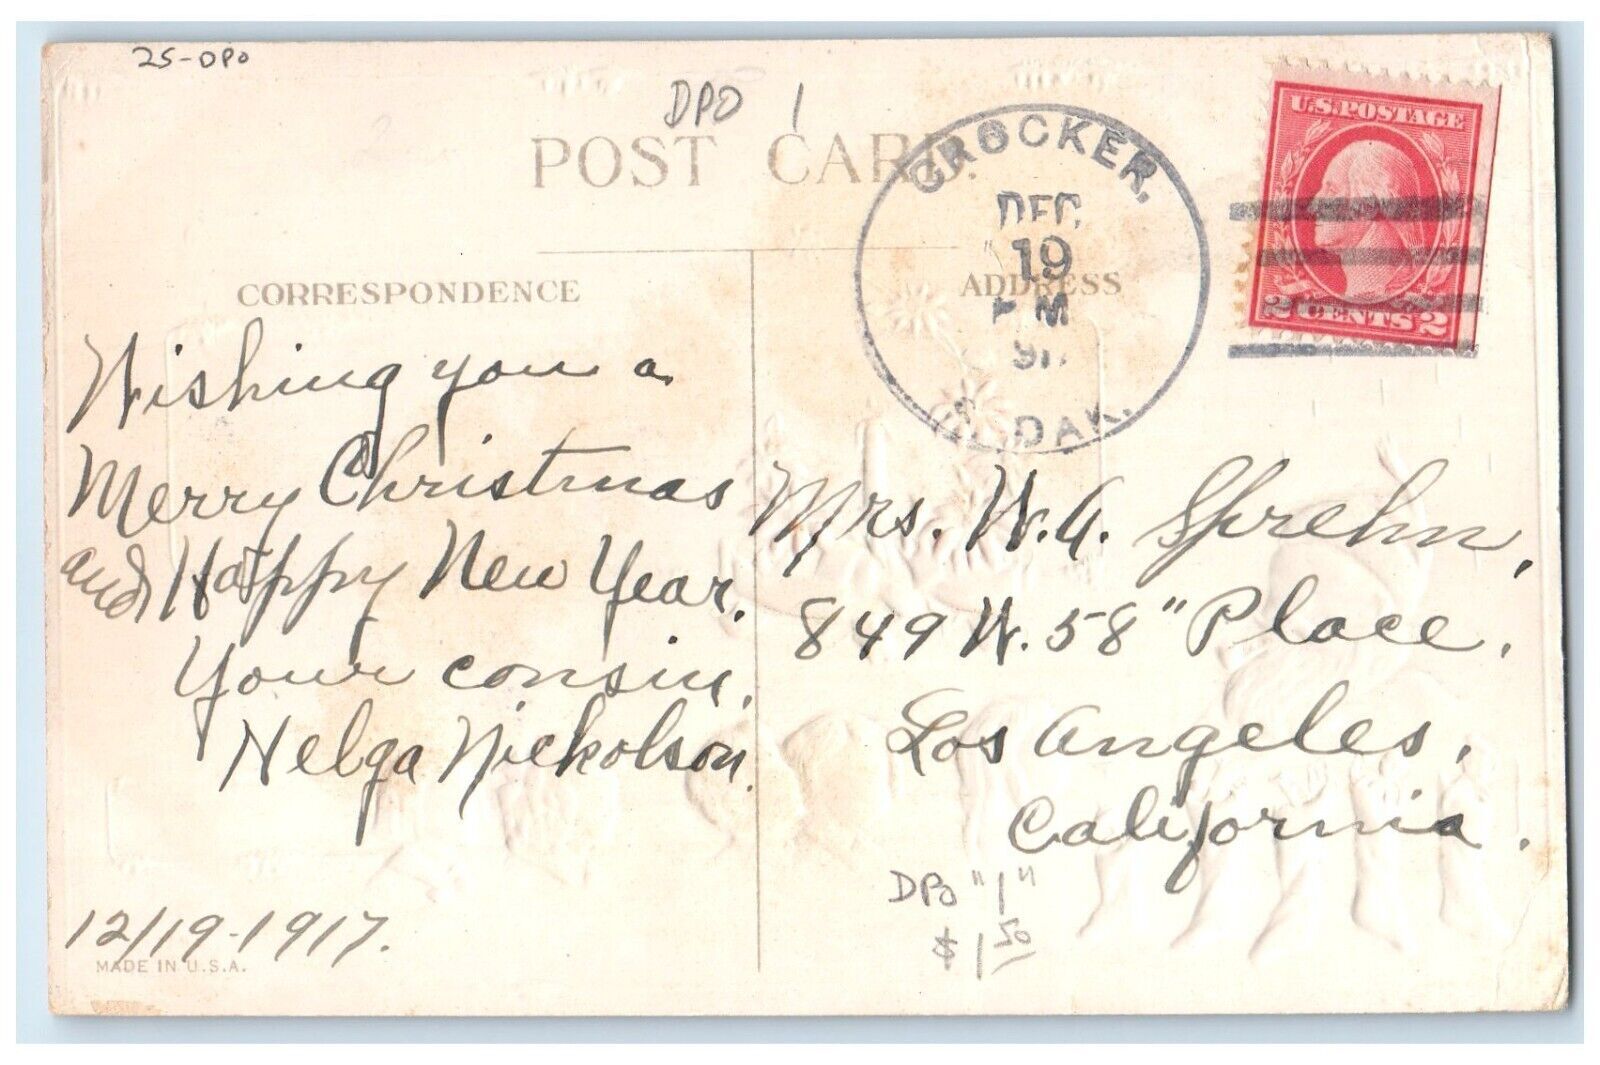 25-DPO
DPO 1
POST CARD.
CROCKER,
DEC
19
M
S. DAK.
U.S. POSTAGE
2 CENTS 2
CORRESPONDENCE
ADDRESS
Wishing you a
Merry Christmas
and Happy New Year.
Your cousin,
Nelga Nickolson.
12/19-1917.
MADE IN U.S.A.
Mrs. W.A. Sprehn,
849 W. 58" Place,
Los Angeles,
California.
DPO "1"
$1.50